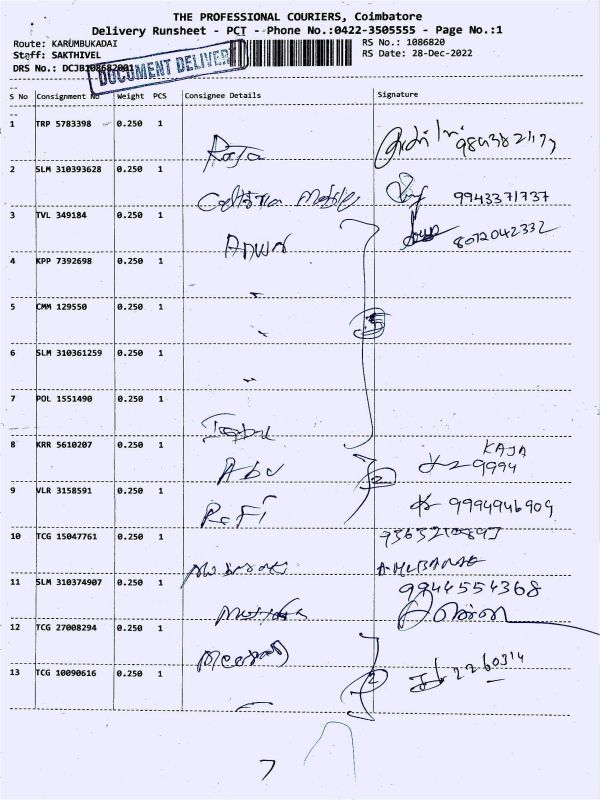 THE PROFESSIONAL COURIERS, Coimbatore
Delivery Runsheet - PCT - Phone No.:0422-3505555 - Page No.:1
Route: KARUMBUKADAI RS No.: 1086820
Staff: SAKTHIVEL RS Date: 28-Dec-2022
DRS No.: DCJB108682001
DOCUMENT DELIVER
S No Consignment No Weight PCS Consignee Details Signature
1 TRP 5783398 0.250 1
Raja
2 SLM 310393628 0.250 1
Mobile 9943371737
3 TVL 349184 0.250 1
Anwar 8072042332
4 KPP 7392698 0.250 1
5 CMM 129550 0.250 1
5
6 SLM 310361259 0.250 1
7 POL 1551490 0.250 1
8 KRR 5610207 0.250 1
KAJA
Abu 2 9994
9 VLR 3158591 0.250 1
Rafi 9994946909
10 TCG 15047761 0.250 1
11 SLM 310374907 0.250 1
9944554368
12 TCG 27008294 0.250 1
13 TCG 10090616 0.250 1
2 2260314
7